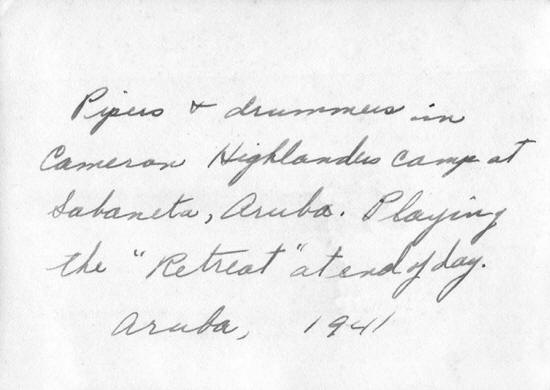 Pipers & drummers in
Cameron Highlanders camp at
Sabaneta, Aruba. Playing
the "Retreat" at end of day.
Aruba, 1941